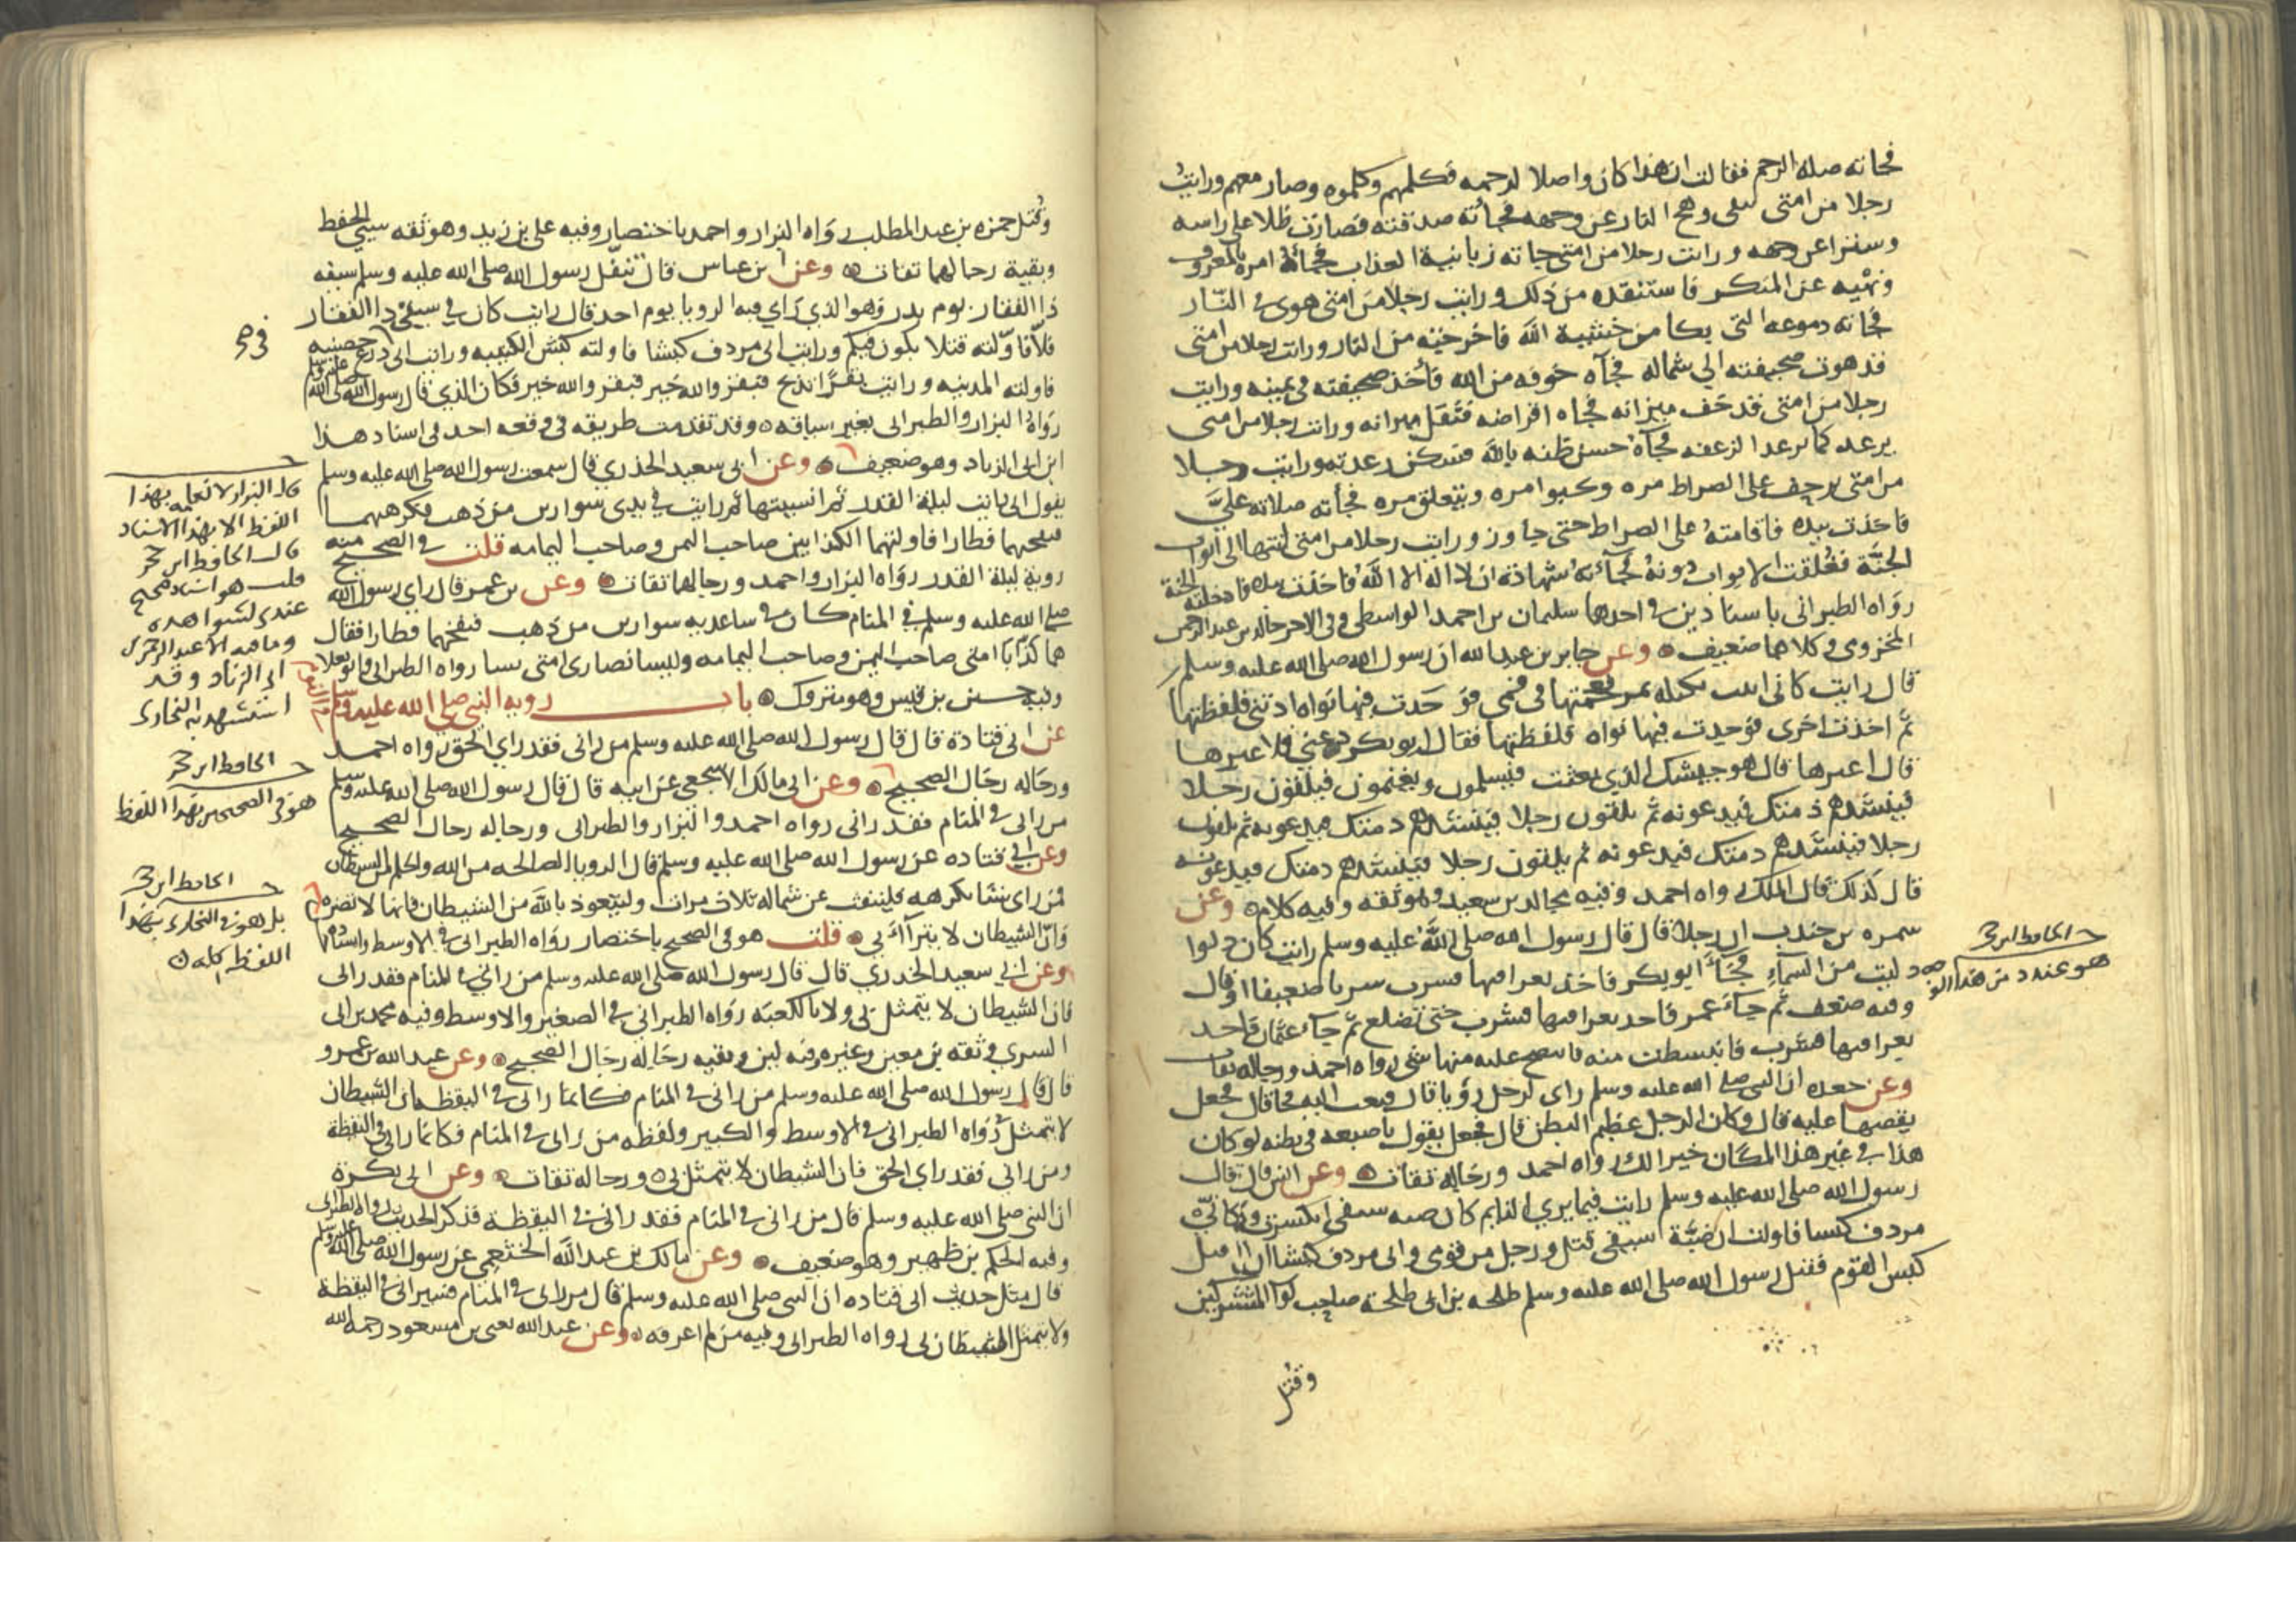 فجاته صلة الرحم فقالت ان هذا كان واصلا لرحمه فكلمهم وكلموه وصار معهم ورايت
رجلا من امتي يتقي وهج النار عن وجهه فجأته صدقته فصارت ظلا على راسه
وسترا عن وجهه ورايت رجلا من امتي جاته زبانية العذاب فجأه امره بالمعروف
ونهيه عن المنكر فاستنقذه من ذلك ورايت رجلا من امتي هوى في النار
فجاته دموعه التي بكا من خشية الله فاخرجته من النار ورايت رجلا من امتي
قد هوت صحيفته الي شماله فجآه خوفه من الله فأخذ صحيفته في يمينه ورايت
رجلا من امتي قد خف ميزانه فجاه افراضه فثقل ميزانه ورايت رجلا من امتي
يرعد كما ترعد الزعفه فجآه حسن ظنه بالله فسكن رعدته ورايت رجلا
من امتي يزحف على الصراط مره وحبوا مره ويتعلق مره فجأته صلاته عليّ
فاخذت بيده فاقامته على الصراط حتى جاوز ورايت رجلا من امتي انتها الى ابواب
الجنة فغلقت الابواب دونه فجآته شهادة ان لا اله الا الله فاخذت بيده فادخلته الجنة
رواه الطبراني باسنادين في احدهما سليمان بن احمد الواسطي وفي الاخر خالد بن عبد الرحمن
المخزومي وكلاهما ضعيف وعن جابر بن عبد الله ان رسول الله صلى الله عليه وسلم
قال رايت كاني اتيت بكتلة تمر فعجمتها في فمي فوجدت فيها نواه اذتني فلفظتها
ثم اخذت اخرى فوجدت فيها نواه فلفظتها فقال ابو بكر دعني فلاعبرها
قال اعبرها قال هو جيشك الذي بعثت فيسلمون ويغنمون فيلقون رجلا
فينشدهم ذمتك فيدعونه ثم يلقون رجلا فينشدهم ذمتك فيدعونه ثم يلقون
رجلا فينشدهم ذمتك فيدعونه ثم يلقون رجلا فينشدهم ذمتك فيدعونه
قال كذلك قال الملك رواه احمد وفيه مجالد بن سعيد وهو ثقه وفيه كلام وعن
سمره بن جندب ان رجلا قال قال رسول الله صلى الله عليه وسلم رايت كان دلوا
دليت من السمآء فجآء ابو بكر فاخذ بعراقيها فشرب شربا ضعيفا او قال
الحافظ ابن حجر
هو عند د من هذا الوجه
وفيه ضعف ثم جآء عمر فاخذ بعراقيها فشرب حتى تضلع ثم جآء عثمان فاخذ
بعراقيها فشرب فانبسطت منه فانتضح عليه منها شي رواه احمد ورجاله ثقات
وعن جعده ان النبي صلى الله عليه وسلم راى لرجل رؤيا قال فبعث اليه فجا قال فجعل
يقصها عليه قال وكان الرجل عظيم البطن قال فجعل يقول باصبعه في بطنه لو كان
هذا في غير هذا المكان خيرا لك رواه احمد ورجاله ثقات وعن انس قال قال
رسول الله صلى الله عليه وسلم رايت فيما يري النايم كان ضبة سيفي انكسرت وكاني
مردف كبشا فاولت ان ضبة سيفي قتل رجل من قومي واني مردف كبشا اني اقتل
كبش القوم فقتل رسول الله صلى الله عليه وسلم طلحه بن ابي طلحة صاحب لوآ المشركين
وقتل
وقتل حمزه بن عبد المطلب رواه البزار واحمد باختصار وفيه علي بن زيد وهو ثقه سيي الحفظ
وبقية رجالهما ثقات وعن ابن عباس قال تنفل رسول الله صلى الله عليه وسلم سيفه
ذا الفقار يوم بدر وهو الذي راي فيه الرويا يوم احد قال رايت كان في سيفي ذا الفقار
فلّا فاولته قتلا يكون فيكم ورايت اني مردف كبشا فاولته كبش الكتيبه ورايت اني في درع حصينه
فاولته المدينه ورايت بقرا تذبح فبقر والله خير فبقر والله خير فكان الذي قال رسول الله صلى الله عليه وسلم
رواه البزار والطبراني بغير سياقه وقد تقدمت طريقه في وقعه احد في اسناد هذا
ابن ابي الزناد وهو ضعيف وعن ابي سعيد الخدري قال سمعت رسول الله صلى الله عليه وسلم
يقول اني رايت ليلة القدر ثم انسيتها ثم رايت في يدي سوارين من ذهب فكرهتهما
فنفختهما فطارا فاولتهما الكذابين صاحب اليمن وصاحب اليمامه قلت في الصحيح منه
روية ليلة القدر رواه البزار واحمد ورجالهما ثقات وعن بن عمر قال راي رسول الله
صلى الله عليه وسلم في المنام كان في ساعديه سوارين من ذهب فنفخهما فطارا فقال
هما كذابا امتي صاحب اليمن وصاحب اليمامه وليسا نضارى امتي نسا رواه الطبراني وابو يعلا
وفيه حسين بن قيس وهو متروك باب روية النبي صلى الله عليه وسلم في النوم
عن ابي قتادة قال قال رسول الله صلى الله عليه وسلم من راني فقد راي الحق رواه احمد
ورجاله رجال الصحيح وعن ابي مالك الاشجعي عن ابيه قال قال رسول الله صلى الله عليه وسلم
من راني في المنام فقد راني رواه احمد والبزار والطبراني ورجاله رجال الصحيح
وعن ابي قتاده عن رسول الله صلى الله عليه وسلم قال الرويا الصالحه من الله والحلم من الشيطان
فمن راى شيا يكرهه فلينفث عن شماله ثلاث مرات وليتعوذ بالله من الشيطان فانها لا تضره
وان الشيطان لا يترآاي بي قلت هو في الصحيح باختصار رواه الطبراني في الاوسط واسناده
وعن ابي سعيد الخدري قال قال رسول الله صلى الله عليه وسلم من راني في المنام فقد راني
فان الشيطان لا يتمثل بي ولا بالكعبه رواه الطبراني في الصغير والاوسط وفيه محمد بن ابي
السري وثقه بن معين وغيره وفيه لين وبقيه رجاله رجال الصحيح وعن عبد الله بن عمرو
قال قال رسول الله صلى الله عليه وسلم من راني في المنام فكانما راني في اليقظه فان الشيطان
لا يتمثل بي رواه الطبراني في الاوسط والكبير ولفظه من راني في المنام فكانما راني في اليقظة
ومن راني فقد راي الحق فان الشيطان لا يتمثل بي ورجاله ثقات وعن ابي بكرة
ان النبي صلى الله عليه وسلم قال من راني في المنام فقد راني في اليقظة فذكر الحديث رواه الطبراني
وفيه الحكم بن ظهير وهو ضعيف وعن مالك بن عبد الله الخثعمي عن رسول الله صلى الله عليه وسلم
قال مثل حديث ابي قتاده ان النبي صلى الله عليه وسلم قال من راني في المنام فسيراني في اليقظة
ولا يتمثل الشيطان بي رواه الطبراني وفيه من لم اعرفه وعن عبد الله يعني بن مسعود رحمه الله
قال البزار لا نعلمه بهذا
اللفظ الا بهذا الاسناد
قال الحافظ ابن حجر
قلت هو اسناد صحيح
عندي لشواهده
وما فيه الا عبد الرحمن بن
ابي الزناد وقد
استشهد به البخاري
الحافظ ابن حجر
هو في الصحيحين بهذا اللفظ
الحافظ ابن حجر
بل هو في البخاري بهذا
اللفظ كله